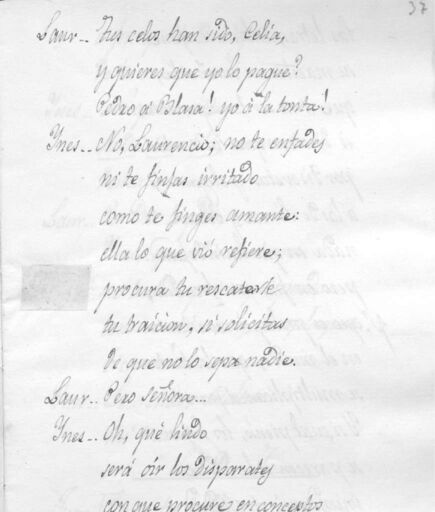 37
Laur.. tus celos han sido, Celia,
y quieres que yo lo pague?
Pedro á Blasa! yo á la tonta!
Ynes.. No, Laurencio; no te enfades
ni te finjas irritado
como te finges amante:
ella lo que vió refiere;
procura tu rescatarle
tu traicion, si solicitas
de que no lo sepa nadie.
Laur.. Pero señora...
Ynes.. Oh, qué lindo
será oír los disparates
con que procure en conceptos